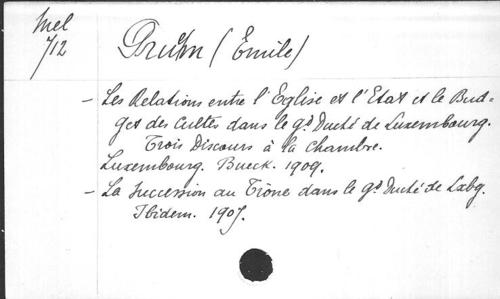 Mel
712
Prüm (Émile)
- Les Relations entre l'Eglise et l'Etat et le Bud-
get des Cultes dans le gd Duché de Luxembourg.
Trois Discours à la Chambre.
Luxembourg. Bueck. 1909.
- La Succession au Trône dans le gd Duché de Luxbg.
Ibidem. 1907.